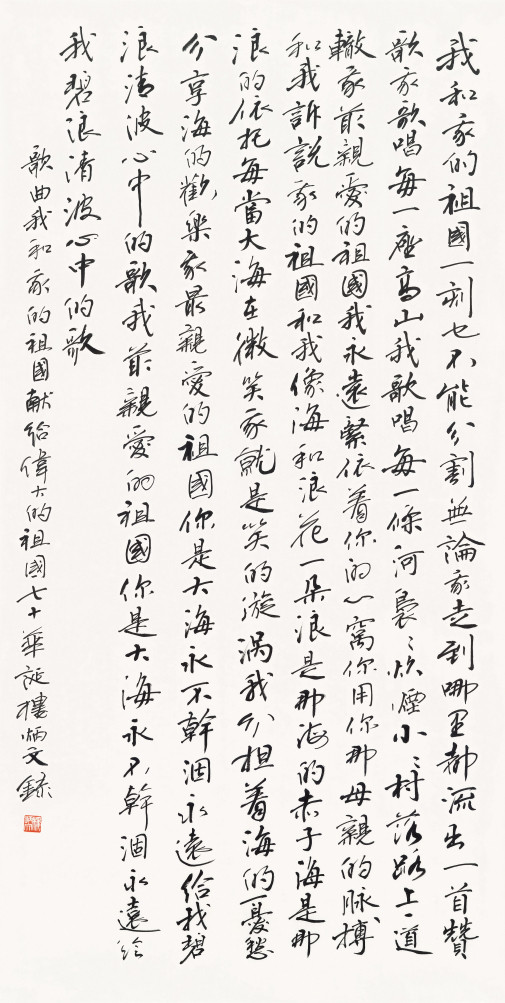 我和我的祖國一刻也不能分割無論我走到哪里都流出一首贊
歌我歌唱每一座高山我歌唱每一條河裊〻炊煙小〻村落路上一道
轍我最親愛的祖國我永遠緊依着你的心窩你用你那母親的脉搏
和我訴説我的祖國和我像海和浪花一朵浪是那海的赤子海是那
浪的依托每當大海在微笑我就是笑的漩渦我分担着海的憂愁
分享海的歡樂我最親愛的祖國你是大海永不幹涸永遠給我碧
浪清波心中的歌我最親愛的祖國你是大海永不幹涸永遠給
我碧浪清波心中的歌
歌曲我和我的祖國獻給偉大的祖國七十華誕樓炳文錄